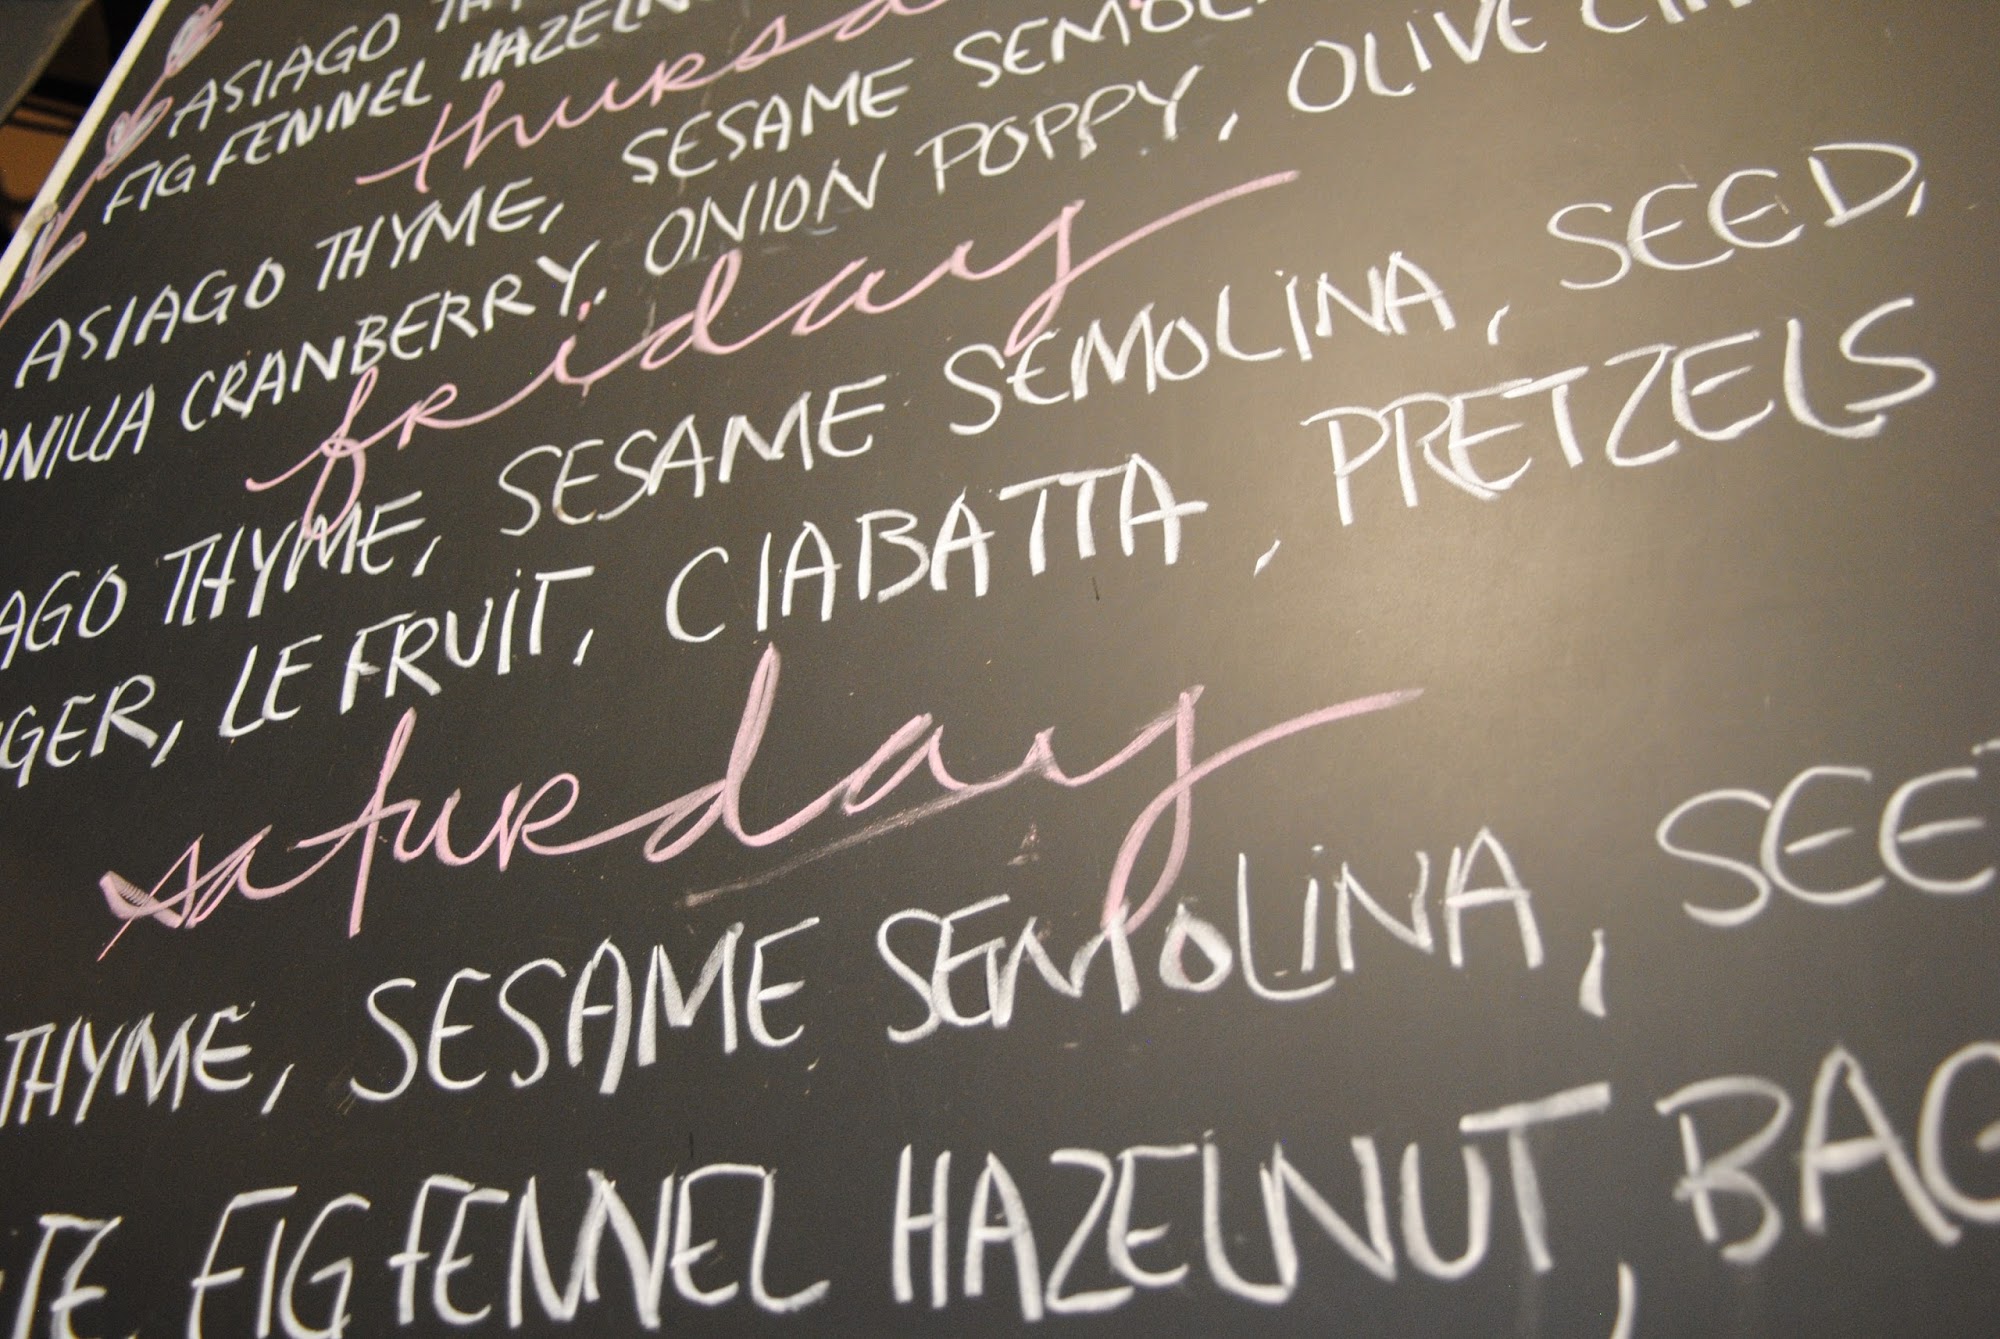 ASIAGO
FIG FENNEL
thursd
ASIAGO THYME, SESAME
CRANBERRY, ONION POPPY, OLIVE
friday
THYME, SESAME SEMOLINA, SEED,
LE FRUIT, CIABATTA, PRETZELS
saturday
THYME, SESAME SEMOLINA,
FIG FENNEL HAZELNUT,